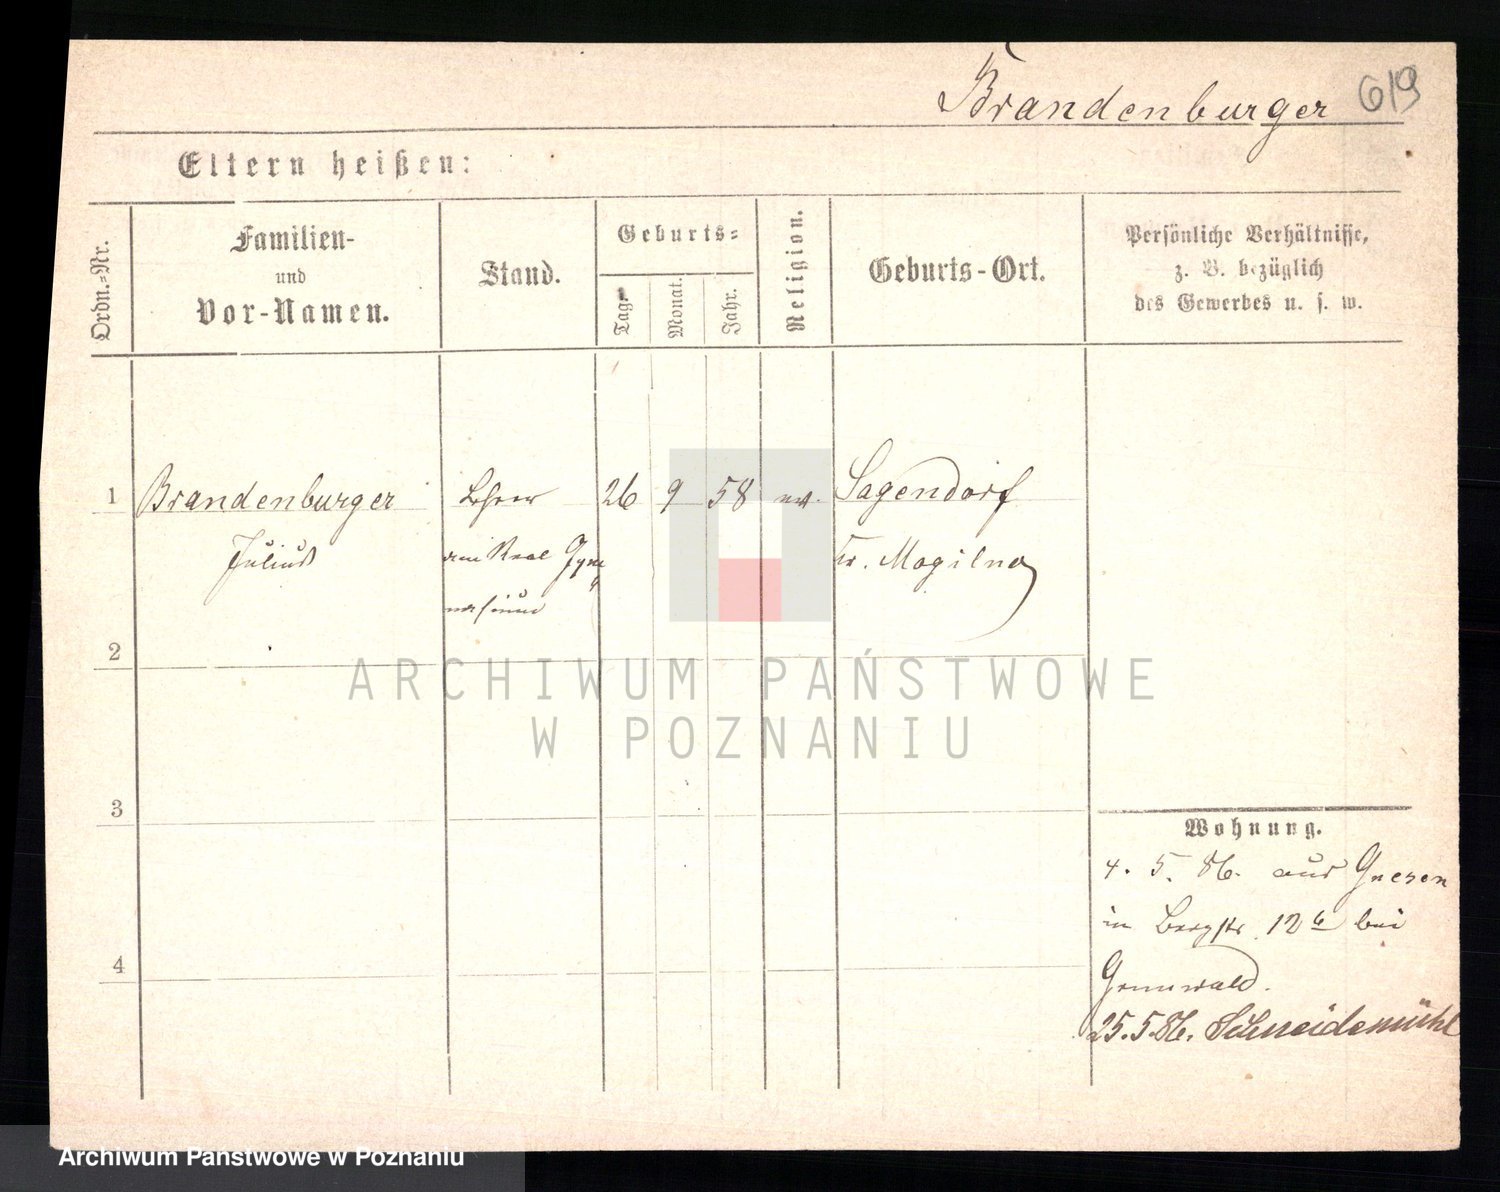 Brandenburger 619
Eltern heißen:
Ordn.-Nr.
Familien-
und
Vor-Namen.
Stand.
Geburts-
Tag.
Monat.
Jahr.
Religion.
Geburts-Ort.
Persönliche Verhältnisse,
z. B. bezüglich
des Gewerbes u. s. w.
1 Brandenburger Lehrer 26 9 58 ev. Sagendorf
Julius am Real Gym Kr. Mogilno
nasium
2
ARCHIWUM PAŃSTWOWE
W POZNANIU
3
Wohnung.
4. 5. 86. aus Gnesen
in Bergstr. 12 b bei
4
25.5.86. Schneidemühl
Archiwum Panstwowe w Poznaniu